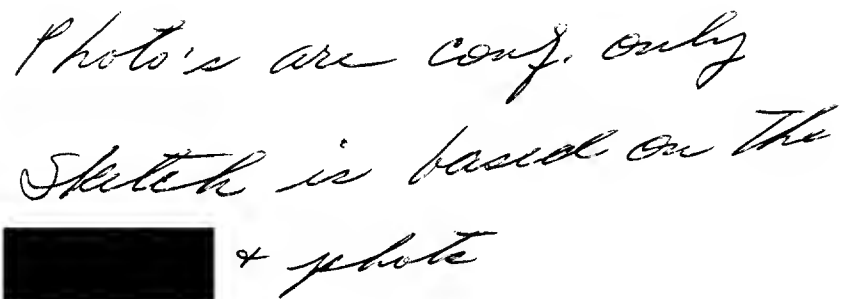 Photo's are conf. only
Sketch is based on the
+ photo